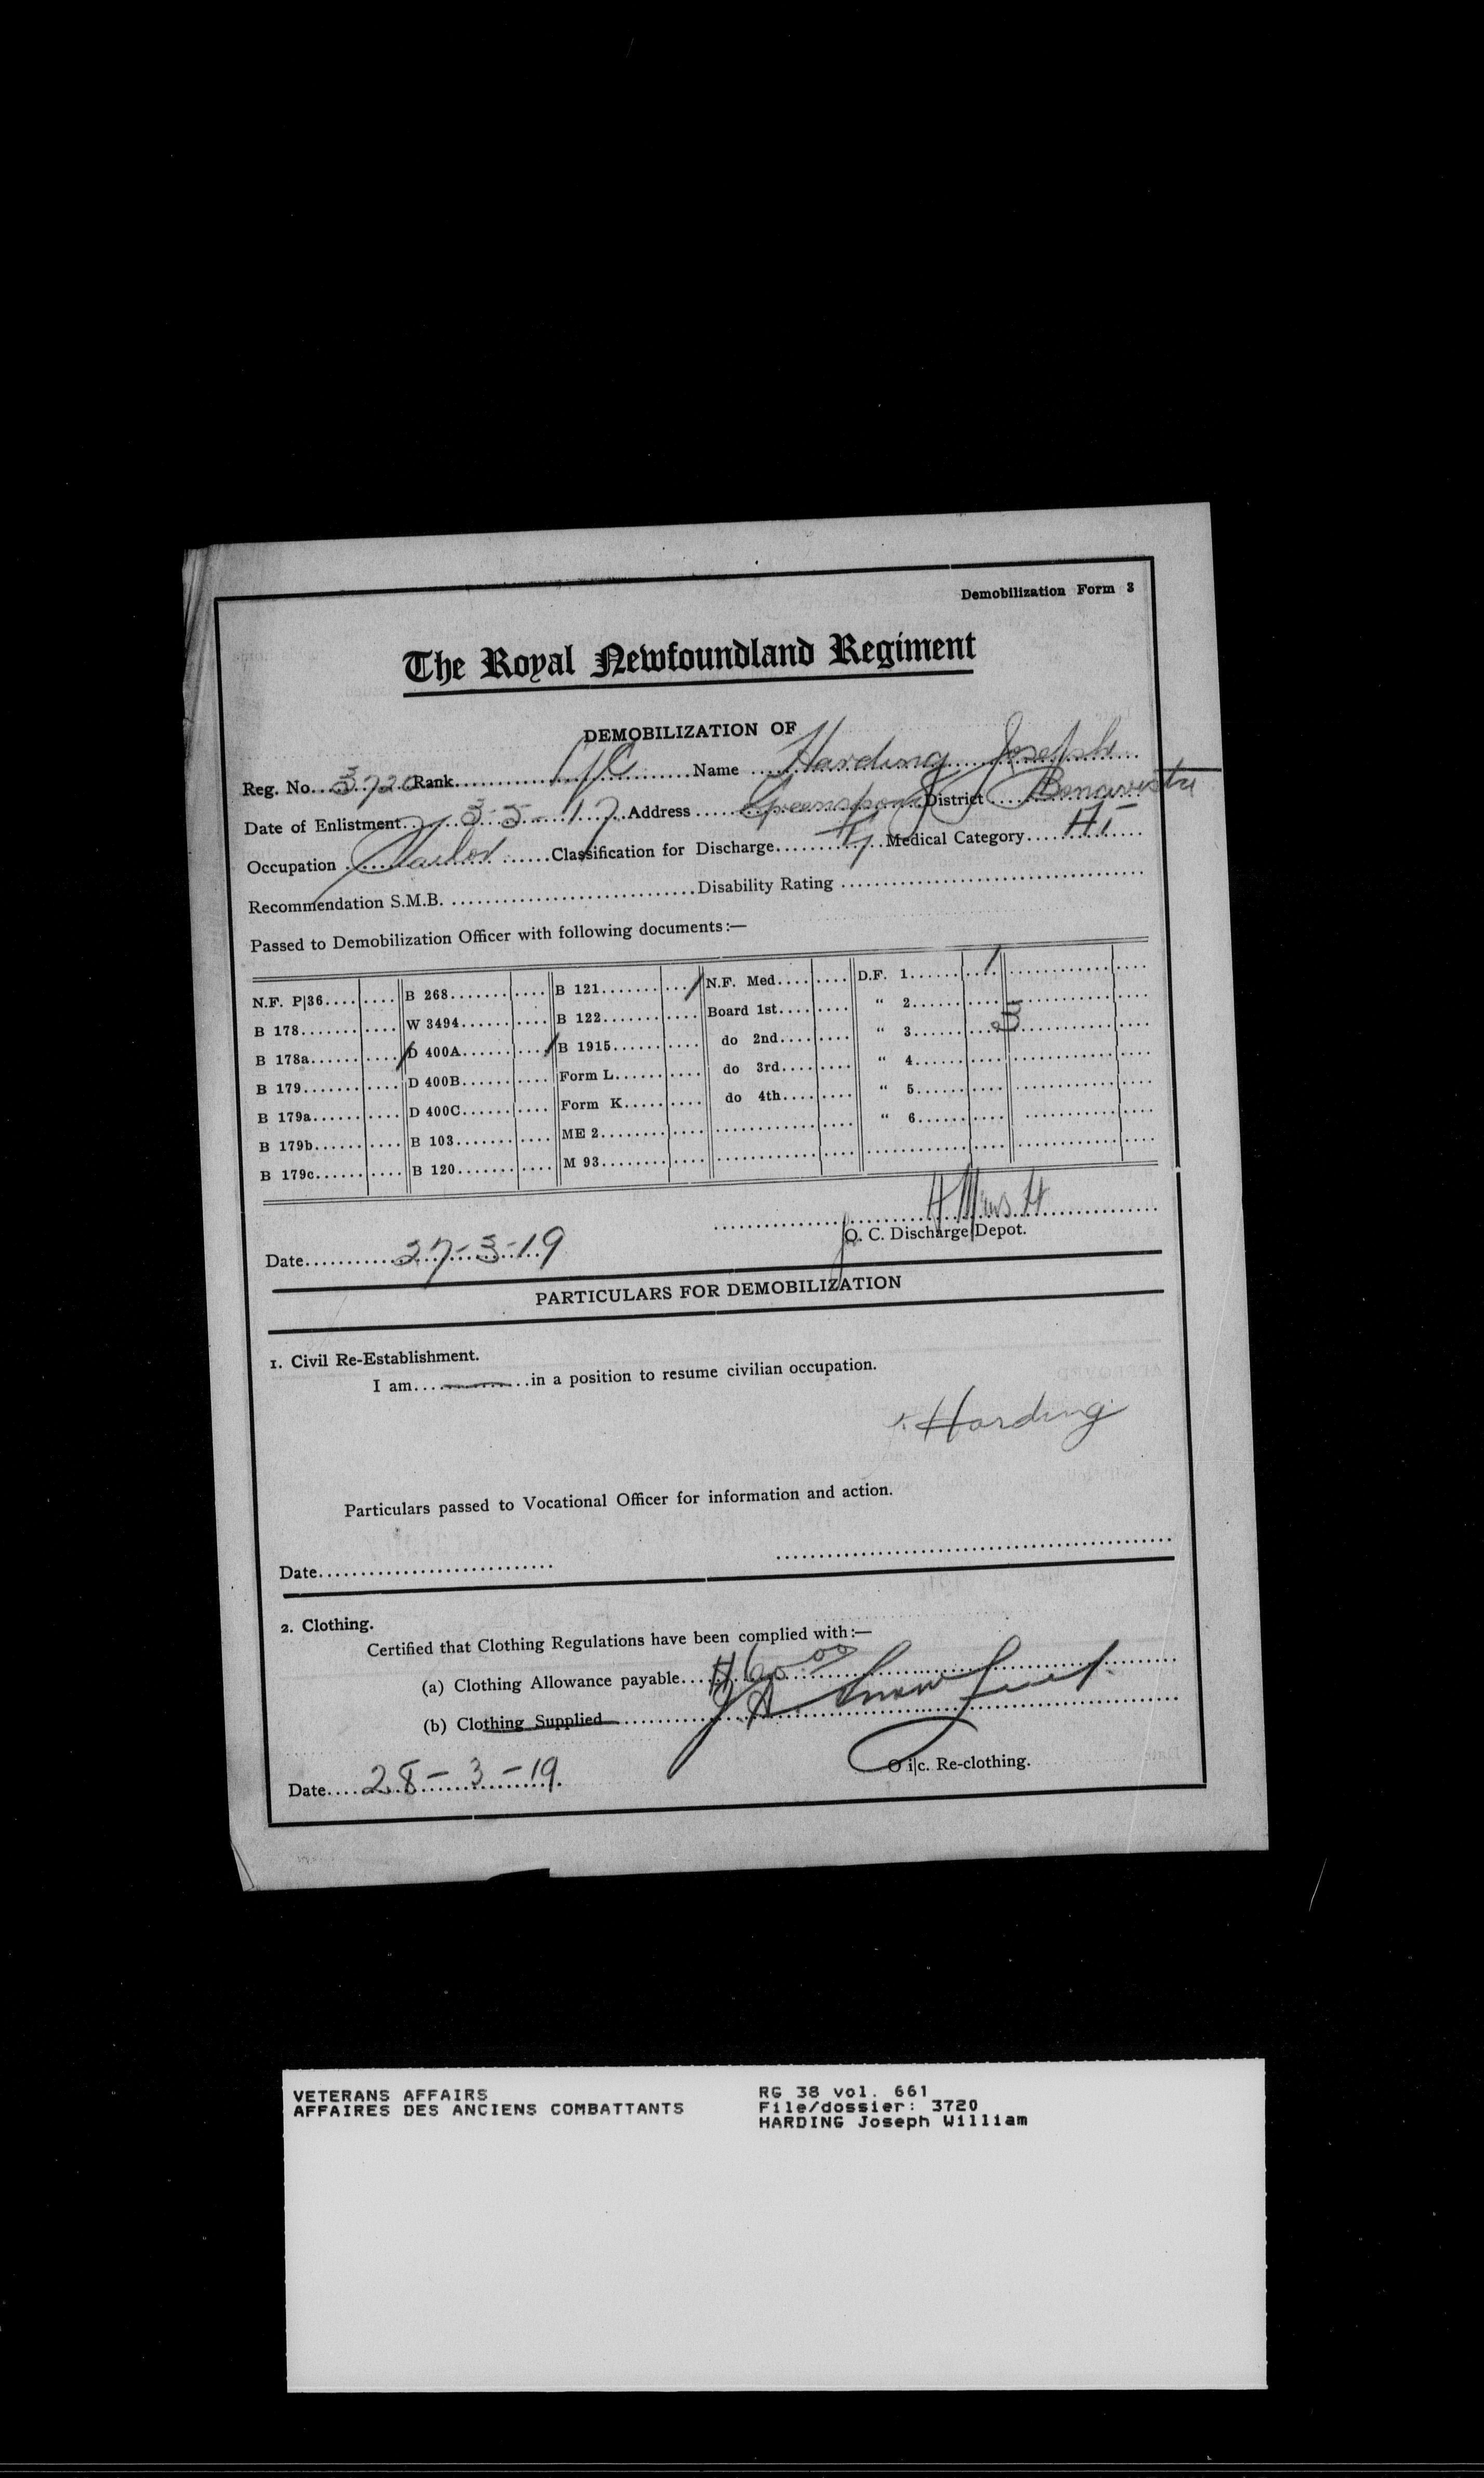 Demobilization Form 3
The Royal Newfoundland Regiment
DEMOBILIZATION OF
Reg. No. 3720 Rank L/C Name Harding Joseph
Date of Enlistment 3-5-17 Address Greenspond District Bonavista
Occupation Classification for Discharge Medical Category A1
Recommendation S.M.B. Disability Rating
Passed to Demobilization Officer with following documents:—
N.F. P|36 B 268 B 121 / N.F. Med. D.F. 1 /
B 178 W 3494 B 122 Board 1st " 2
B 178a / D 400A / B 1915 do 2nd " 3
B 179 D 400B Form L do 3rd " 4
B 179a D 400C Form K do 4th " 5
B 179b B 103 ME 2 " 6
B 179c B 120 M 93
O. C. Discharge Depot.
Date 27-3-19
PARTICULARS FOR DEMOBILIZATION
1. Civil Re-Establishment.
I am in a position to resume civilian occupation.
Harding
Particulars passed to Vocational Officer for information and action.
Date
2. Clothing.
Certified that Clothing Regulations have been complied with:—
(a) Clothing Allowance payable $60.00
(b) Clothing Supplied
O i|c. Re-clothing.
Date 28-3-19
VETERANS AFFAIRS RG 38 vol. 661
AFFAIRES DES ANCIENS COMBATTANTS File/dossier: 3720
HARDING Joseph William